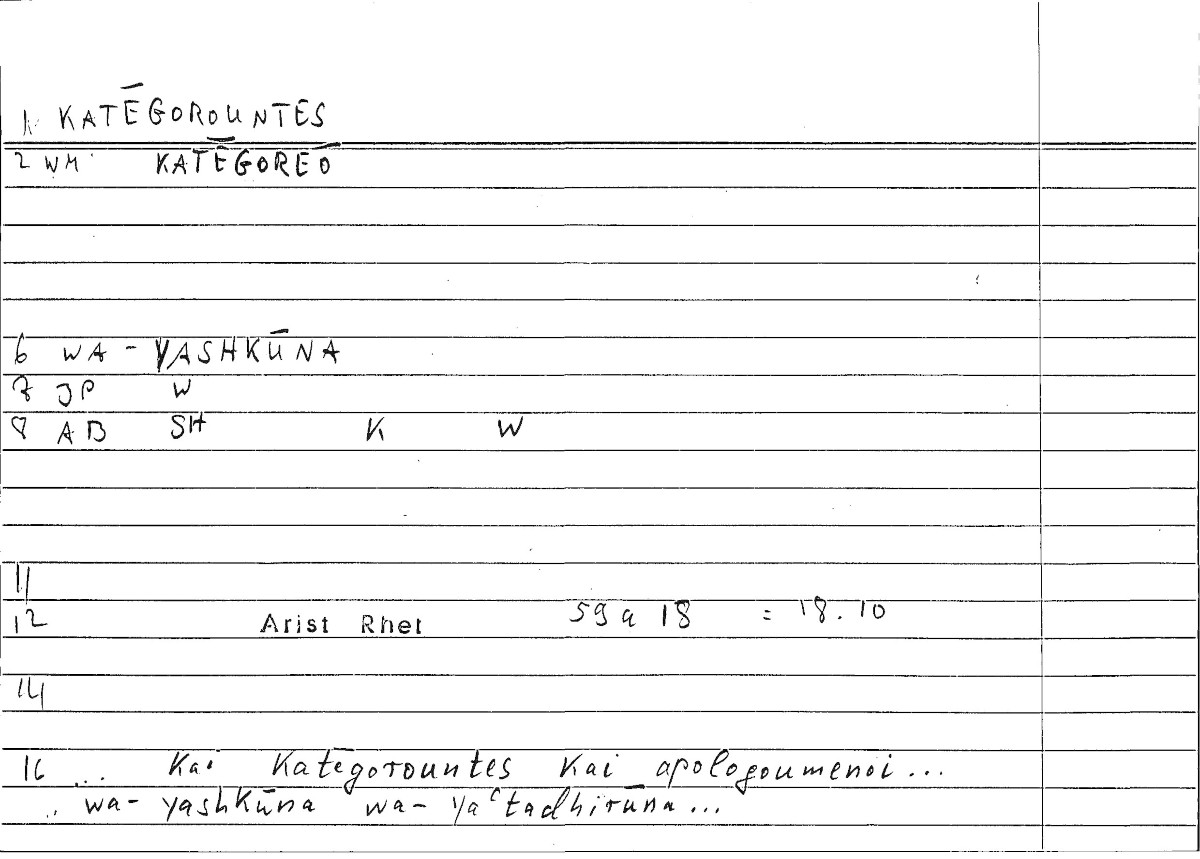 1 KATĒGOROUNTES
2 WM KATĒGOREŌ
6 WA - YASHKŪNA
7 JP W
8 AB SH K W
11
12 Arist Rhet 59a 18 = 18.10
14
16 ... Kai Katēgorountes Kai apologoumenoi ...
.. wa- yashkūna wa- yaʿtadhirūna ...